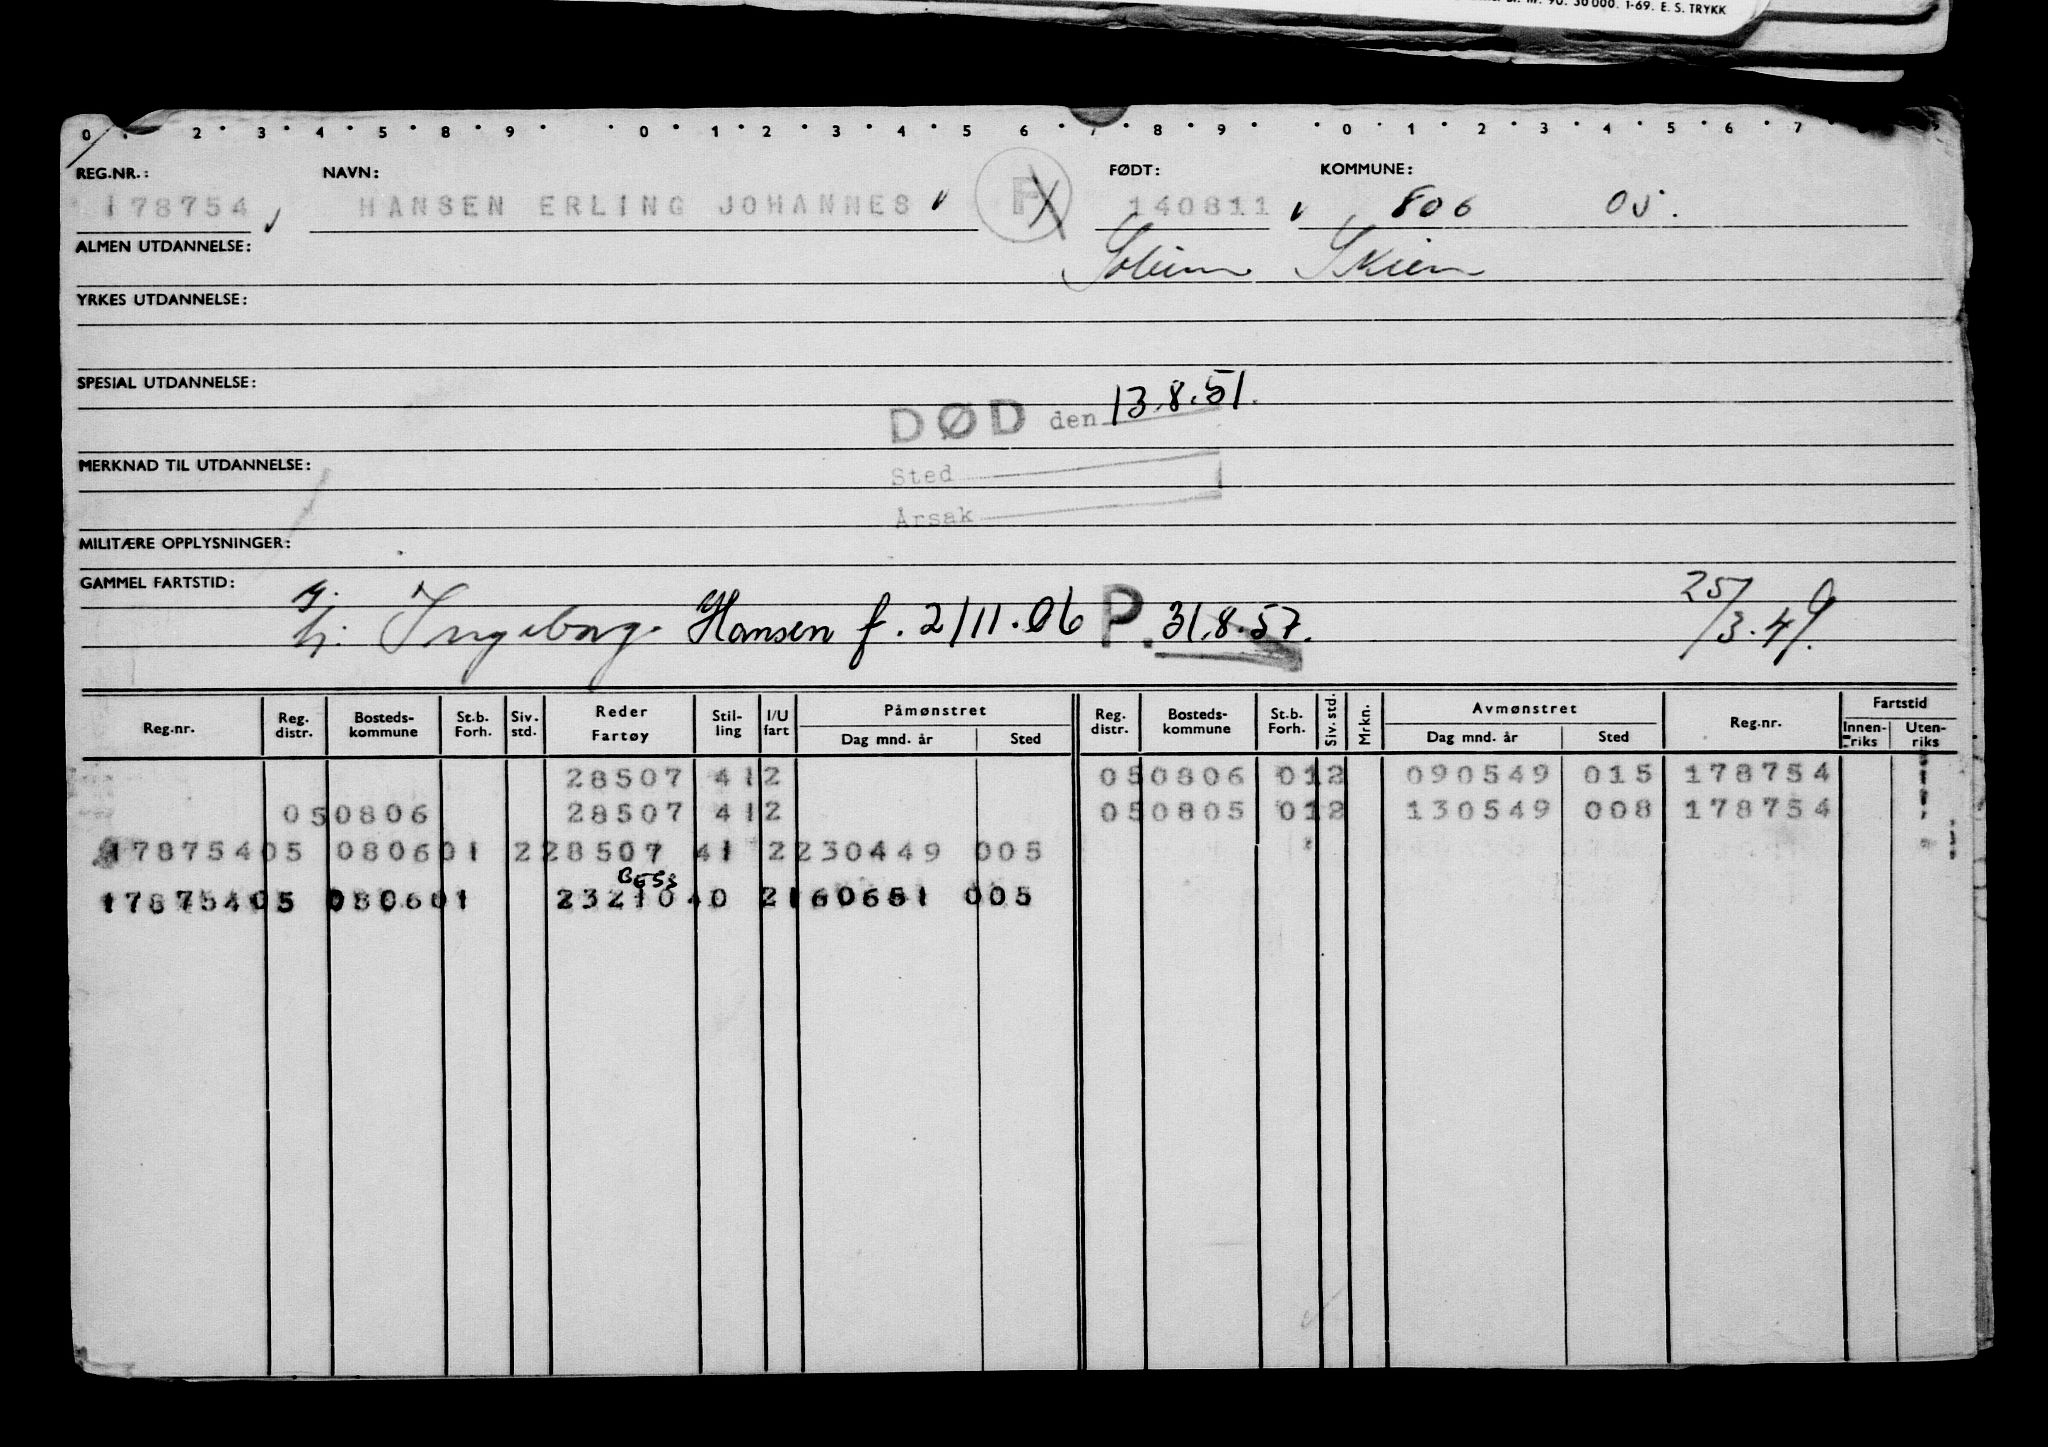 Nr. 90. 30 000. 1-69. E. S. TRYKK
0 2 3 4 5 8 9 0 1 2 3 4 5 6 7 8 9 0 1 2 3 4 5 6 7
REG.NR.: NAVN: FØDT: KOMMUNE:
178754 HANSEN ERLING JOHANNES F 140811 806 05.
ALMEN UTDANNELSE: Solum Skien
YRKES UTDANNELSE:
SPESIAL UTDANNELSE:
DØD den 13.8.51.
MERKNAD TIL UTDANNELSE:
Sted
Årsak
MILITÆRE OPPLYSNINGER:
GAMMEL FARTSTID:
g.
h. Ingeborg Hansen f. 2/11.06 P. 31.8.57. 25/3.49.
Reg.nr. Reg. distr. Bosteds-kommune St.b. Forh. Siv. std. Reder Fartøy Stil-ling I/U fart Påmønstret Dag mnd. år Sted Reg. distr. Bosteds-kommune St.b. Forh. Siv. std. Mrkn. Avmønstret Dag mnd. år Sted Reg.nr. Fartstid Innen-riks Uten-riks
28507 412 050806 012 090549 015 178754
050806 28507 412 050805 012 130549 008 178754
17875405 080601 228507 41 2230449 005
BESS
17875405 080601 2321040 2160651 005